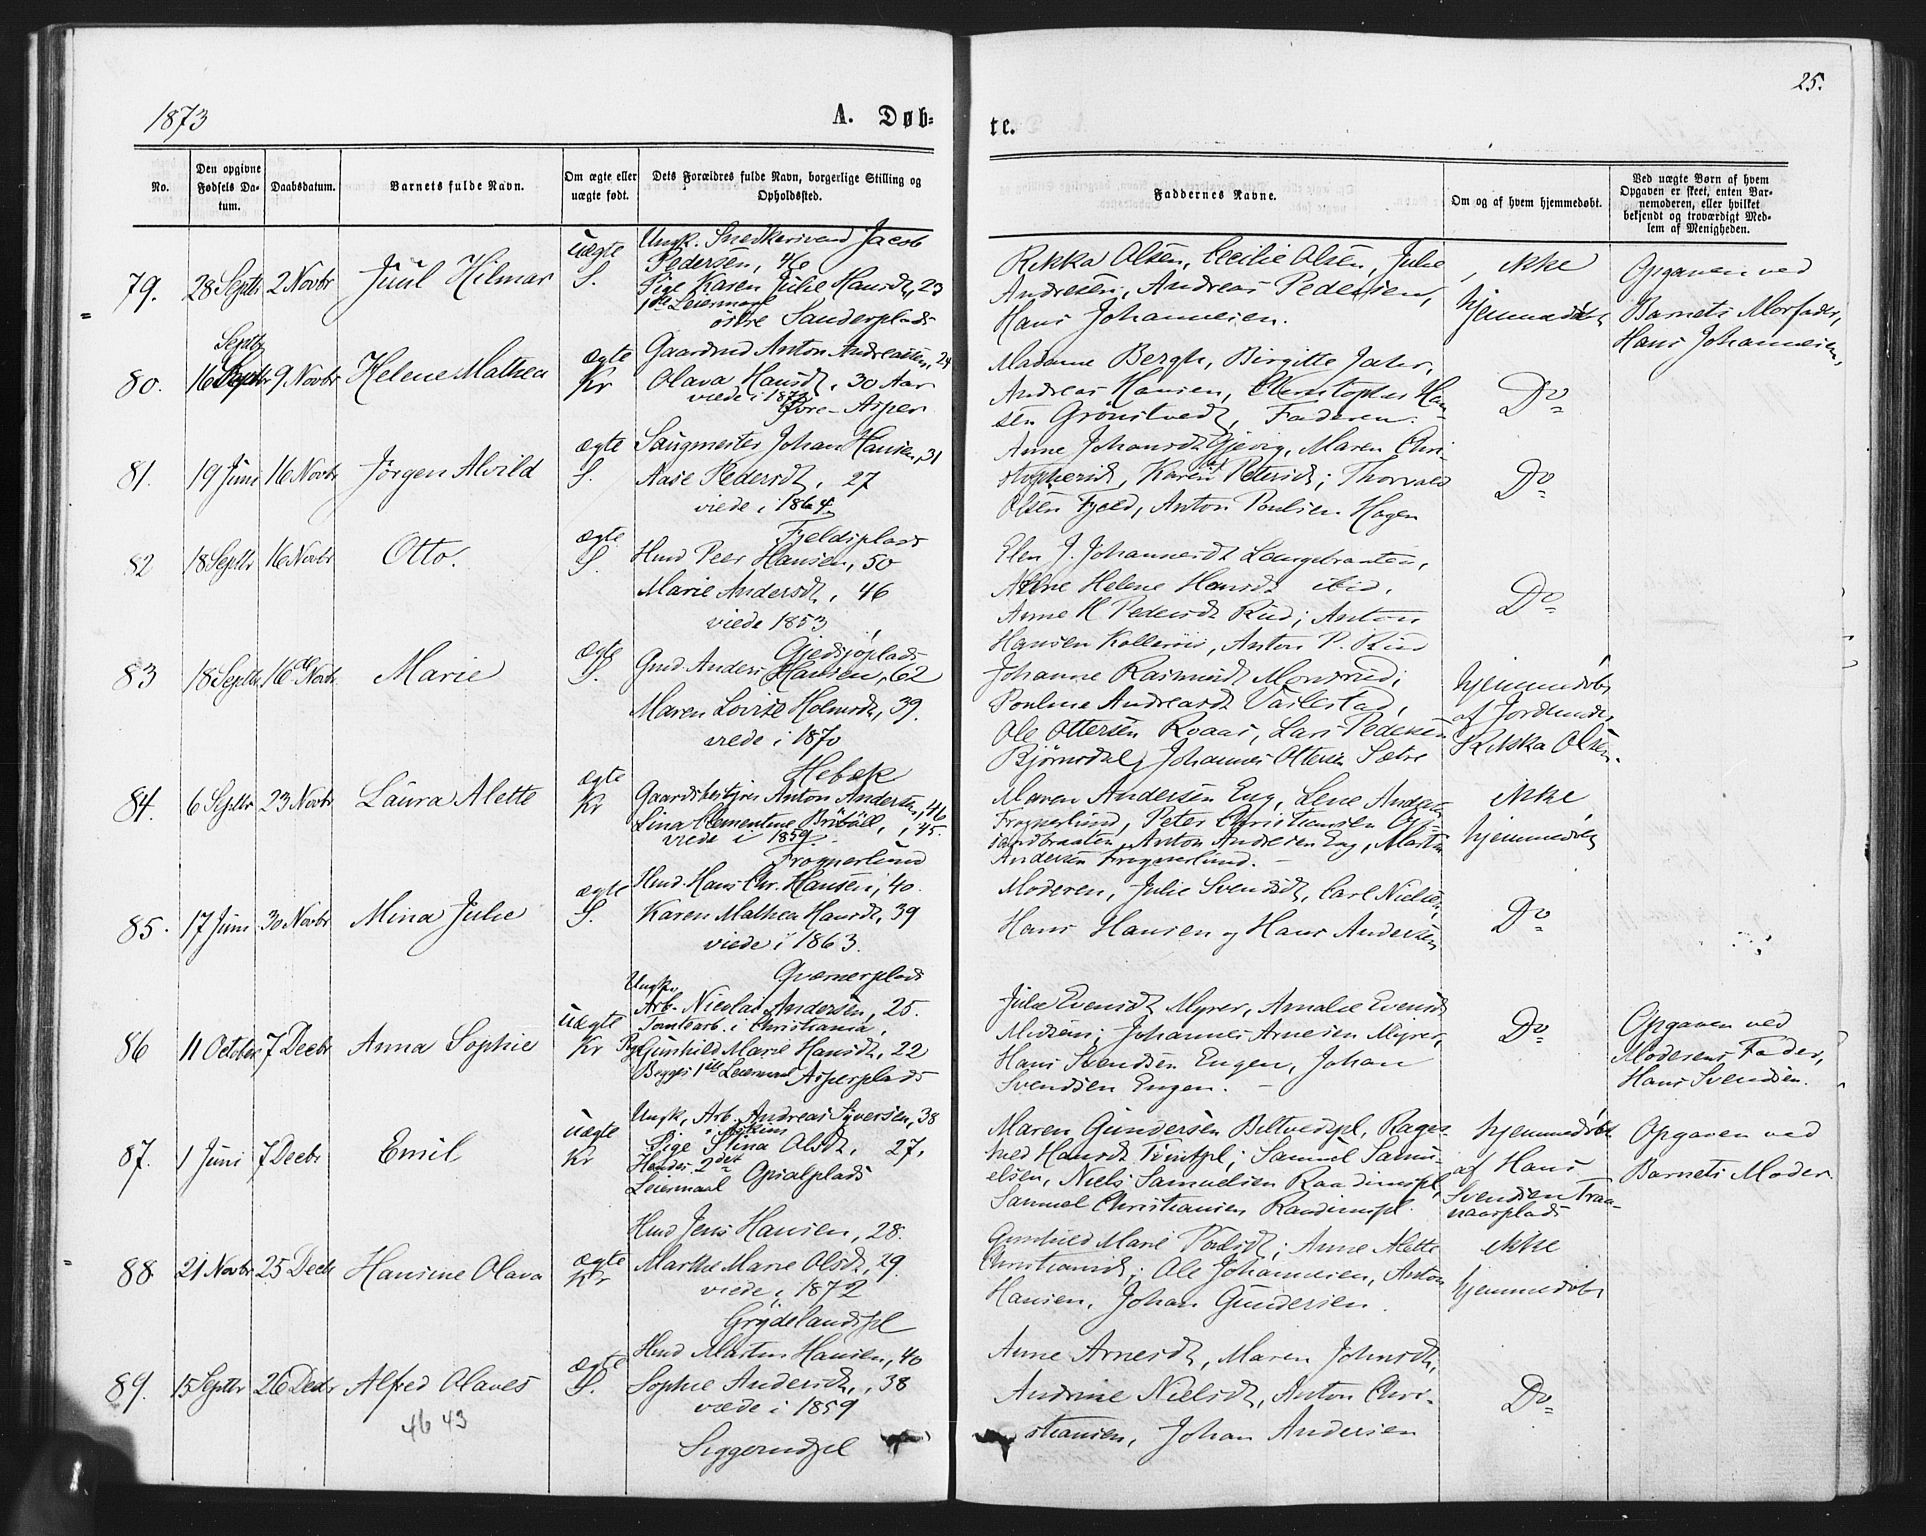 25.
1873
A. Døb-
te.
No.
Den opgivne Fødsels Da-tum.
Daabsdatum.
Barnets fulde Navn.
Om ægte eller uægte født.
Dets Forældres fulde Navn, borgerlige Stilling og Opholdssted.
Faddernes Navne.
Om og af hvem hjemmedøbt.
Ved uægte Børn af hvem Opgaven er skeet, enten Bar-nemoderen, eller hvilket bekjendt og troværdigt Med-lem af Menigheden.
79. 28 Septbr 2 Novbr Juul Hilmar uægte S.
Ungk. Snedkersvend Jacob
Pedersen, 46
Pige Karen Julie Hansdt, 23
1ste Leiermaal
østre Sanderplads
Rikka Olsen, Cecilie Olsen, Julie
Andresen, Andreas Pedersen,
Hans Johannesen.
ikke
hjemmedøbt
Opgaven ved
Barnets Morfader,
Hans Johannesen,
Septbr
80. 16 9 Novbr Helene Mathea ægte Kr
Gaardmd Anton Andreasen, 24
Olava Hansdt, 30 Aar
viede i 1872
Øvre-Asper
Madame Bergh, Birgitte
Andreas Hansen, Christopher Han-
sen Grønstvedt, Faderen.
Do
81. 19 Juni 16 Novbr Jørgen Alvild ægte S.
Saugmester Johan Hansen, 31
Aase Pedersdt, 27
viede i 1864
Fjeldsplads
Anne Johansdt Gjevig, Maren Chri-
stophersdt, Karen Petersdt; Thorvald
Olsen Fjeld, Anton Poulsen Hagen
Do
82 18 Septbr 16 Novbr Otto. ægte S.
Hmd Peer Hansen, 50
Marie Andersdt, 46
viede 1853
Gjedsjøplads
Elen J. Johannesdt Langebraaten,
Helene Hansdt ibid,
Anne H Pedersdt Rud; Anton
Hansen Kollerüs, Anton P. Rud
Do
83 18 Septbr 16de Novbr Marie ægte S.
Gmd. Anders Hansen, 62
Maren Lovise Holmsdt, 39.
viede i 1870
Hebæk
Johanne Rasmusdt Monsrud;
Poulene Andreasdt Vaslestad,
Ole Ottersen Roaas, Lars Pedersen
Bjørnsdal, Johannes Ottersen Sætre
hjemmedøbt
af Jordmdr.
Rikka Olsen.
84. 6 Septbr 23 Novbr Laura Alette ægte Kr
Gaardsbestyrer Anton Andersen, 46
Lina Clementine Bribøll, 45.
viede i 1859
Frognerlund
Maren Andersen Eng, Lene Anders
Frognerlund, Peter Christiansen
braaten, Anton Andresen Eng, Martin
Andersen Frognerlund.
ikke
hjemmedøbt
85. 17 Juni 30 Novbr Mina Julie ægte S.
Hmd. Hans Chr. Hansen, 40.
Karen Mathea Hansdt, 39
viede i 1863.
Qværnerplads
Moderen, Julie Svendsdt, Carl Nielsen,
Hans Hansen og Hans Andersen
Do
86 11 October 7 Decbr Anna Sophie uægte Kr
Ungk.
Arb. Nicolai Andersen, 25.
Tomtearb. i Christiania,
Pg Gunhild Marie Hansdt, 22
Begges 1ste Leiermaal Asperplads
Julie Evensdt Myrer, Amalie Evensdt
Johannes Arnesen Myrer,
Hans Svendsen Engen, Johan
Svendsen Engen.
Do
Opgaven ved
Moderens Fader,
Hans Svendsen.
87. 1 Juni 7 Decbr Emil uægte Kr
Ungk, Arb Andreas Syversen, 38
i Askim
Pige Stina Olsdt, 27,
Hendes 2det
Leiermaal Opsalplads
Maren Gundersen Biltvedpl, Ragn-
hild Hansdt Tomtpl; Samuel Samu-
elsen, Niels Samuelsen Raadumspl,
Samuel Christiansen Raadumspl.
hjemmedøbt
af Hans
Svendsen Traa-
naarplads
Opgaven ved
Barnets Moder.
88. 21 Novbr 25 Decbr Hansine Olava ægte Kr
Hmd Jens Hansen, 28.
Marthe Marie Olsdt, 29.
viede i 1872
Grydelandspl
Gunhild Marie Poulsdt; Anne Alette
Christiansdt; Ole Johannesen, Anton
Hansen, Johan Gundersen.
ikke
hjemmedøbt
89. 15 Septbr 26 Decbr Alfred Olaves ægte S.
46 43
Hmd Martin Hansen, 40
Sophie Andersdt, 38
viede i 1859
Siggerudpl
Anne Arnesdt, Maren Johnsdt,
Andrine Nielsdt, Anton Chri-
stiansen, Johan Andersen
Do